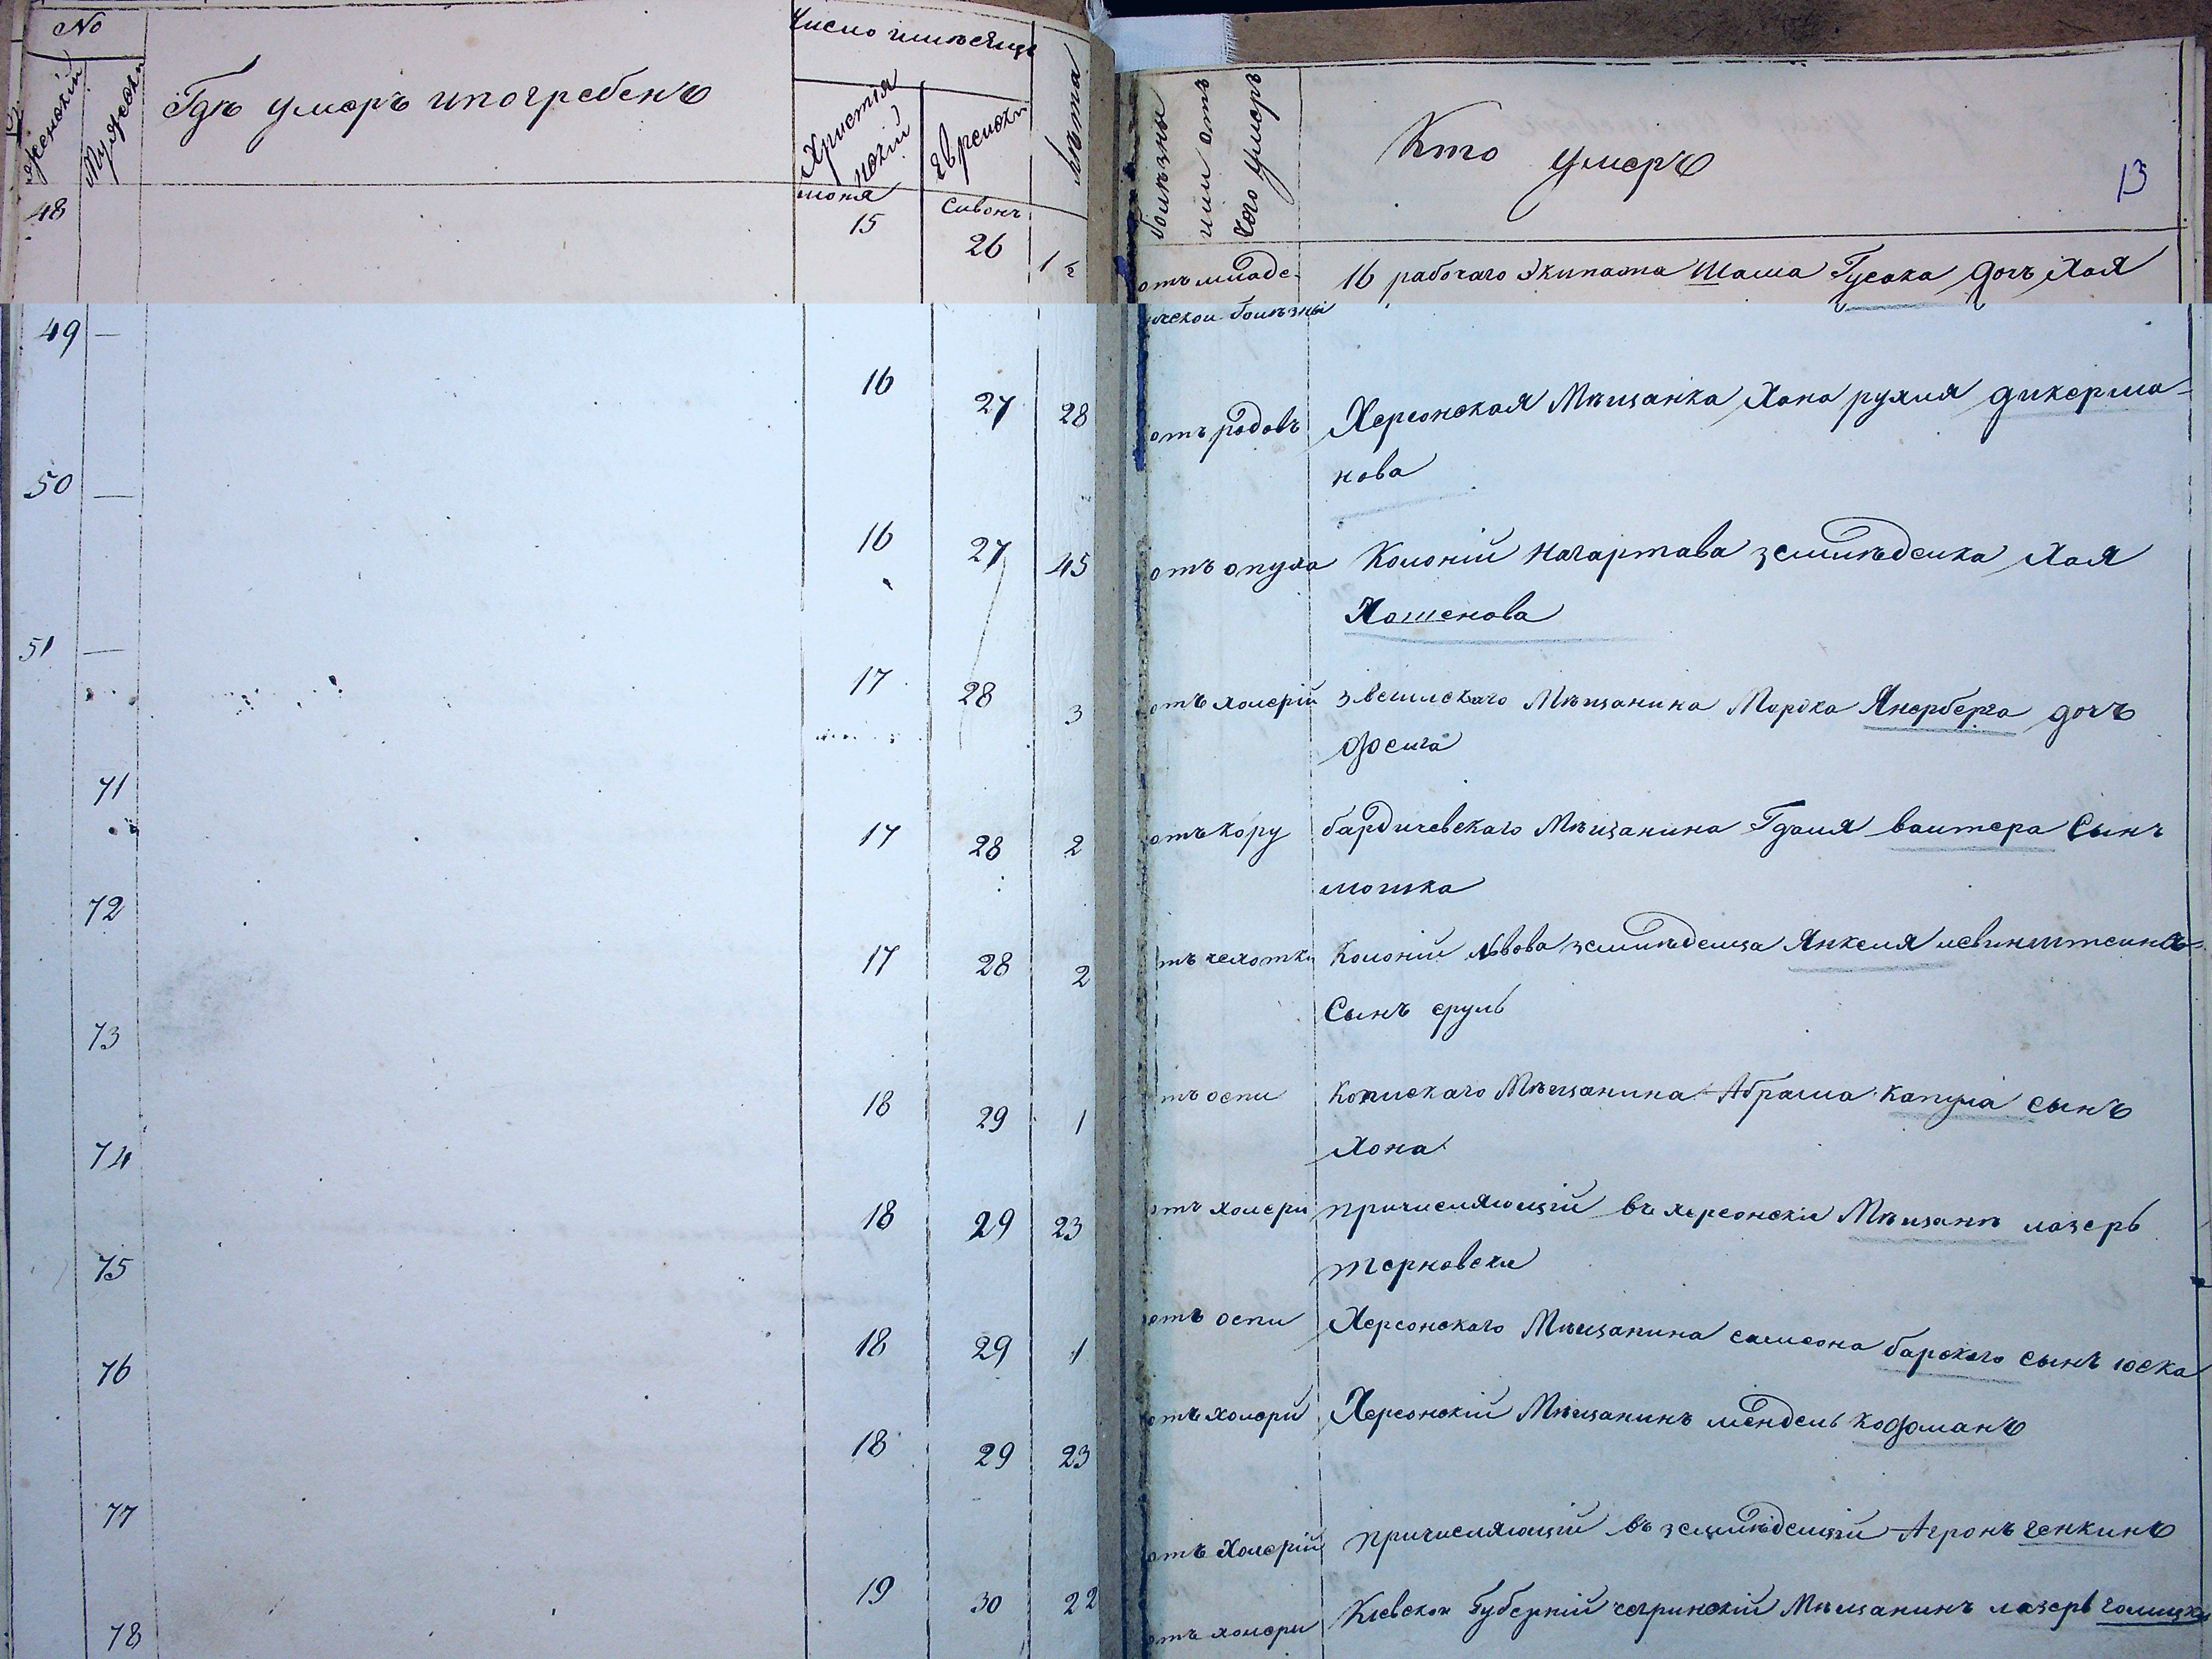 No
женскій
Мужеск
Гдѣ умеръ и погребенъ
Число и мѣсяцъ
Христіянскій
Еврейски
Лѣта
болѣзны или отъ кого умеръ
Кто умеръ
13
48
июня 15
Сивонъ 26
1
отъ младе-
16 рабочаго Экипажа Шаша Гусака дочь Хая
ческой болѣзны
49 —
16
27
28
отъ родовъ
Херсонская Мѣщанка Хана рухля дикерма-
нова
50 —
16
27
45
отъ опуха
Колоніи Нагартава земледелка Хая
Хошенова
51 —
17
28
3
отъ холеріи
Мѣщанина Мордка Янерберга дочь
фейга
71
17
28
2
отъ кору
бардичевскаго Мѣщанина Гдаля валтера Сынъ
мошка
72
17
28
2
отъ чехотки
Колоніи Львова земледелца Янкеля левинштеина
Сынъ сруль
73
18
29
1
отъ оспи
Мѣщанина Абрама Капула сынъ
Хона
74
18
29
23
отъ холери
причисляющій въ херсонскіе Мѣщане лазеръ
терновски
75
18
29
1
отъ оспи
Херсонскаго Мѣщанина самсона барскаго сынъ юска
76
18
29
23
отъ холери
Херсонскій Мѣщанинъ мендель кофманъ
77
19
30
22
отъ Холеріи
причисляющій въ земледелцы Агронъ генкинъ
78
отъ холери
Кіевской Губерніи чегринскій Мѣщанинъ лазеръ